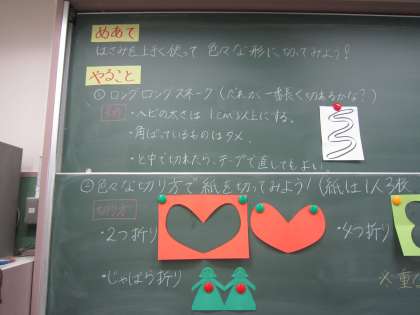 めあて
はさみを上手く使って 色々な形に切ってみよう!
やること
① ロングロングスネーク(だれが、一番長く切れるかな?)
・ヘビの太さは1cm以上にする。
・角ばっているものはダメ。
・と中で切れたら、テープで直してもよい。
② 色々な切り方で紙を切ってみよう!(紙は1人3枚
切り方
・2つ折り
・4つ折り
・じゃばら折り
※重